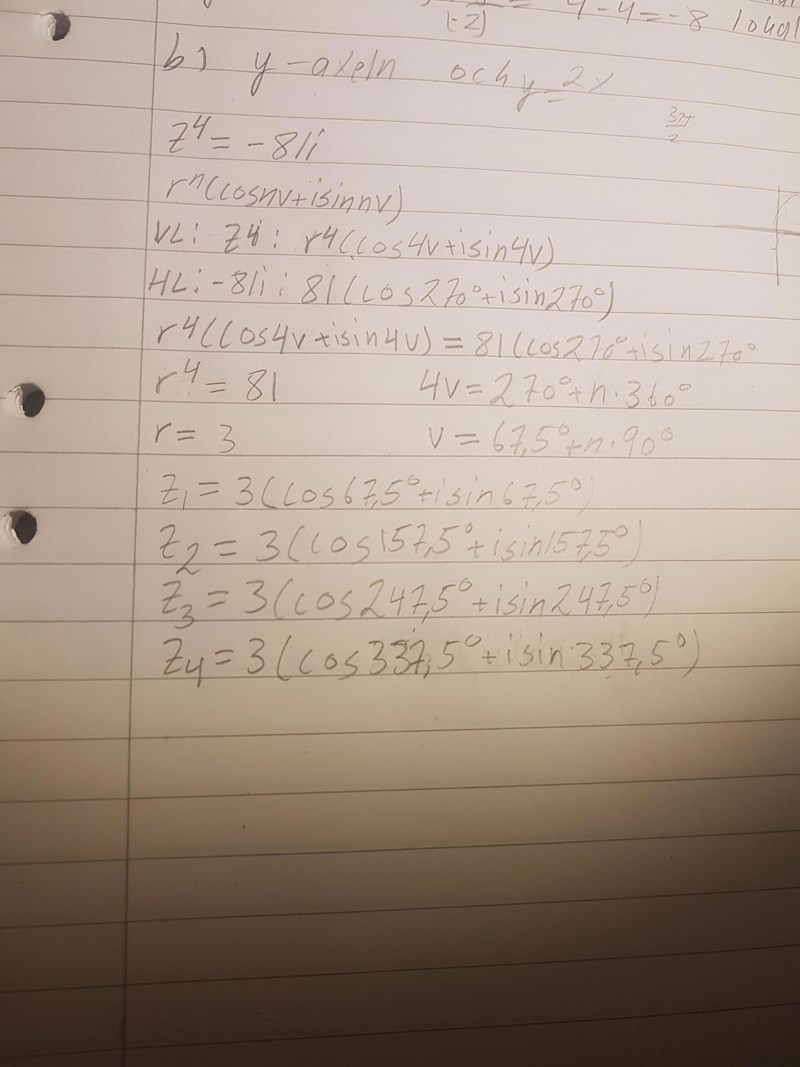 (-2) = 4-4=-8 lokal
b) y-axeln och y=2x
3π/2
z⁴ = -81i
rⁿ(cosnv+isinnv)
VL: Z⁴: r⁴(cos4v+isin4v)
HL: -81i: 81(cos270°+isin270°)
r⁴(cos4v+isin4v) = 81(cos270°+isin270°
r⁴ = 81 4v=270°+n·360°
r = 3 v = 67,5°+n·90°
Z₁ = 3(cos67,5°+isin67,5°)
Z₂ = 3(cos157,5°+isin157,5°)
Z₃ = 3(cos247,5°+isin247,5°)
Z₄ = 3(cos337,5°+isin337,5°)